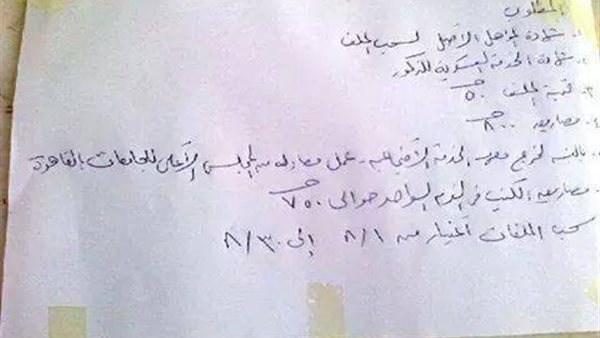 المطلوب
١- شهادة المؤهل الأصل لسحب الملف
٢- شهادة الخدمة العسكرية للذكور
٣- قيمة الملف ٥٠ جـ
٤- مصاريف ٨٠٠ جـ
بالنسبة لخريج معهد الخدمة الاجتماعية - عمل معادلة من المجلس الأعلى للجامعات بالقاهرة
مصاريف الكتب فى الترم الواحد حوالى ٧٥٠ جـ
سحب الملفات اعتبار من ٨/١ إلى ٨/٣٠